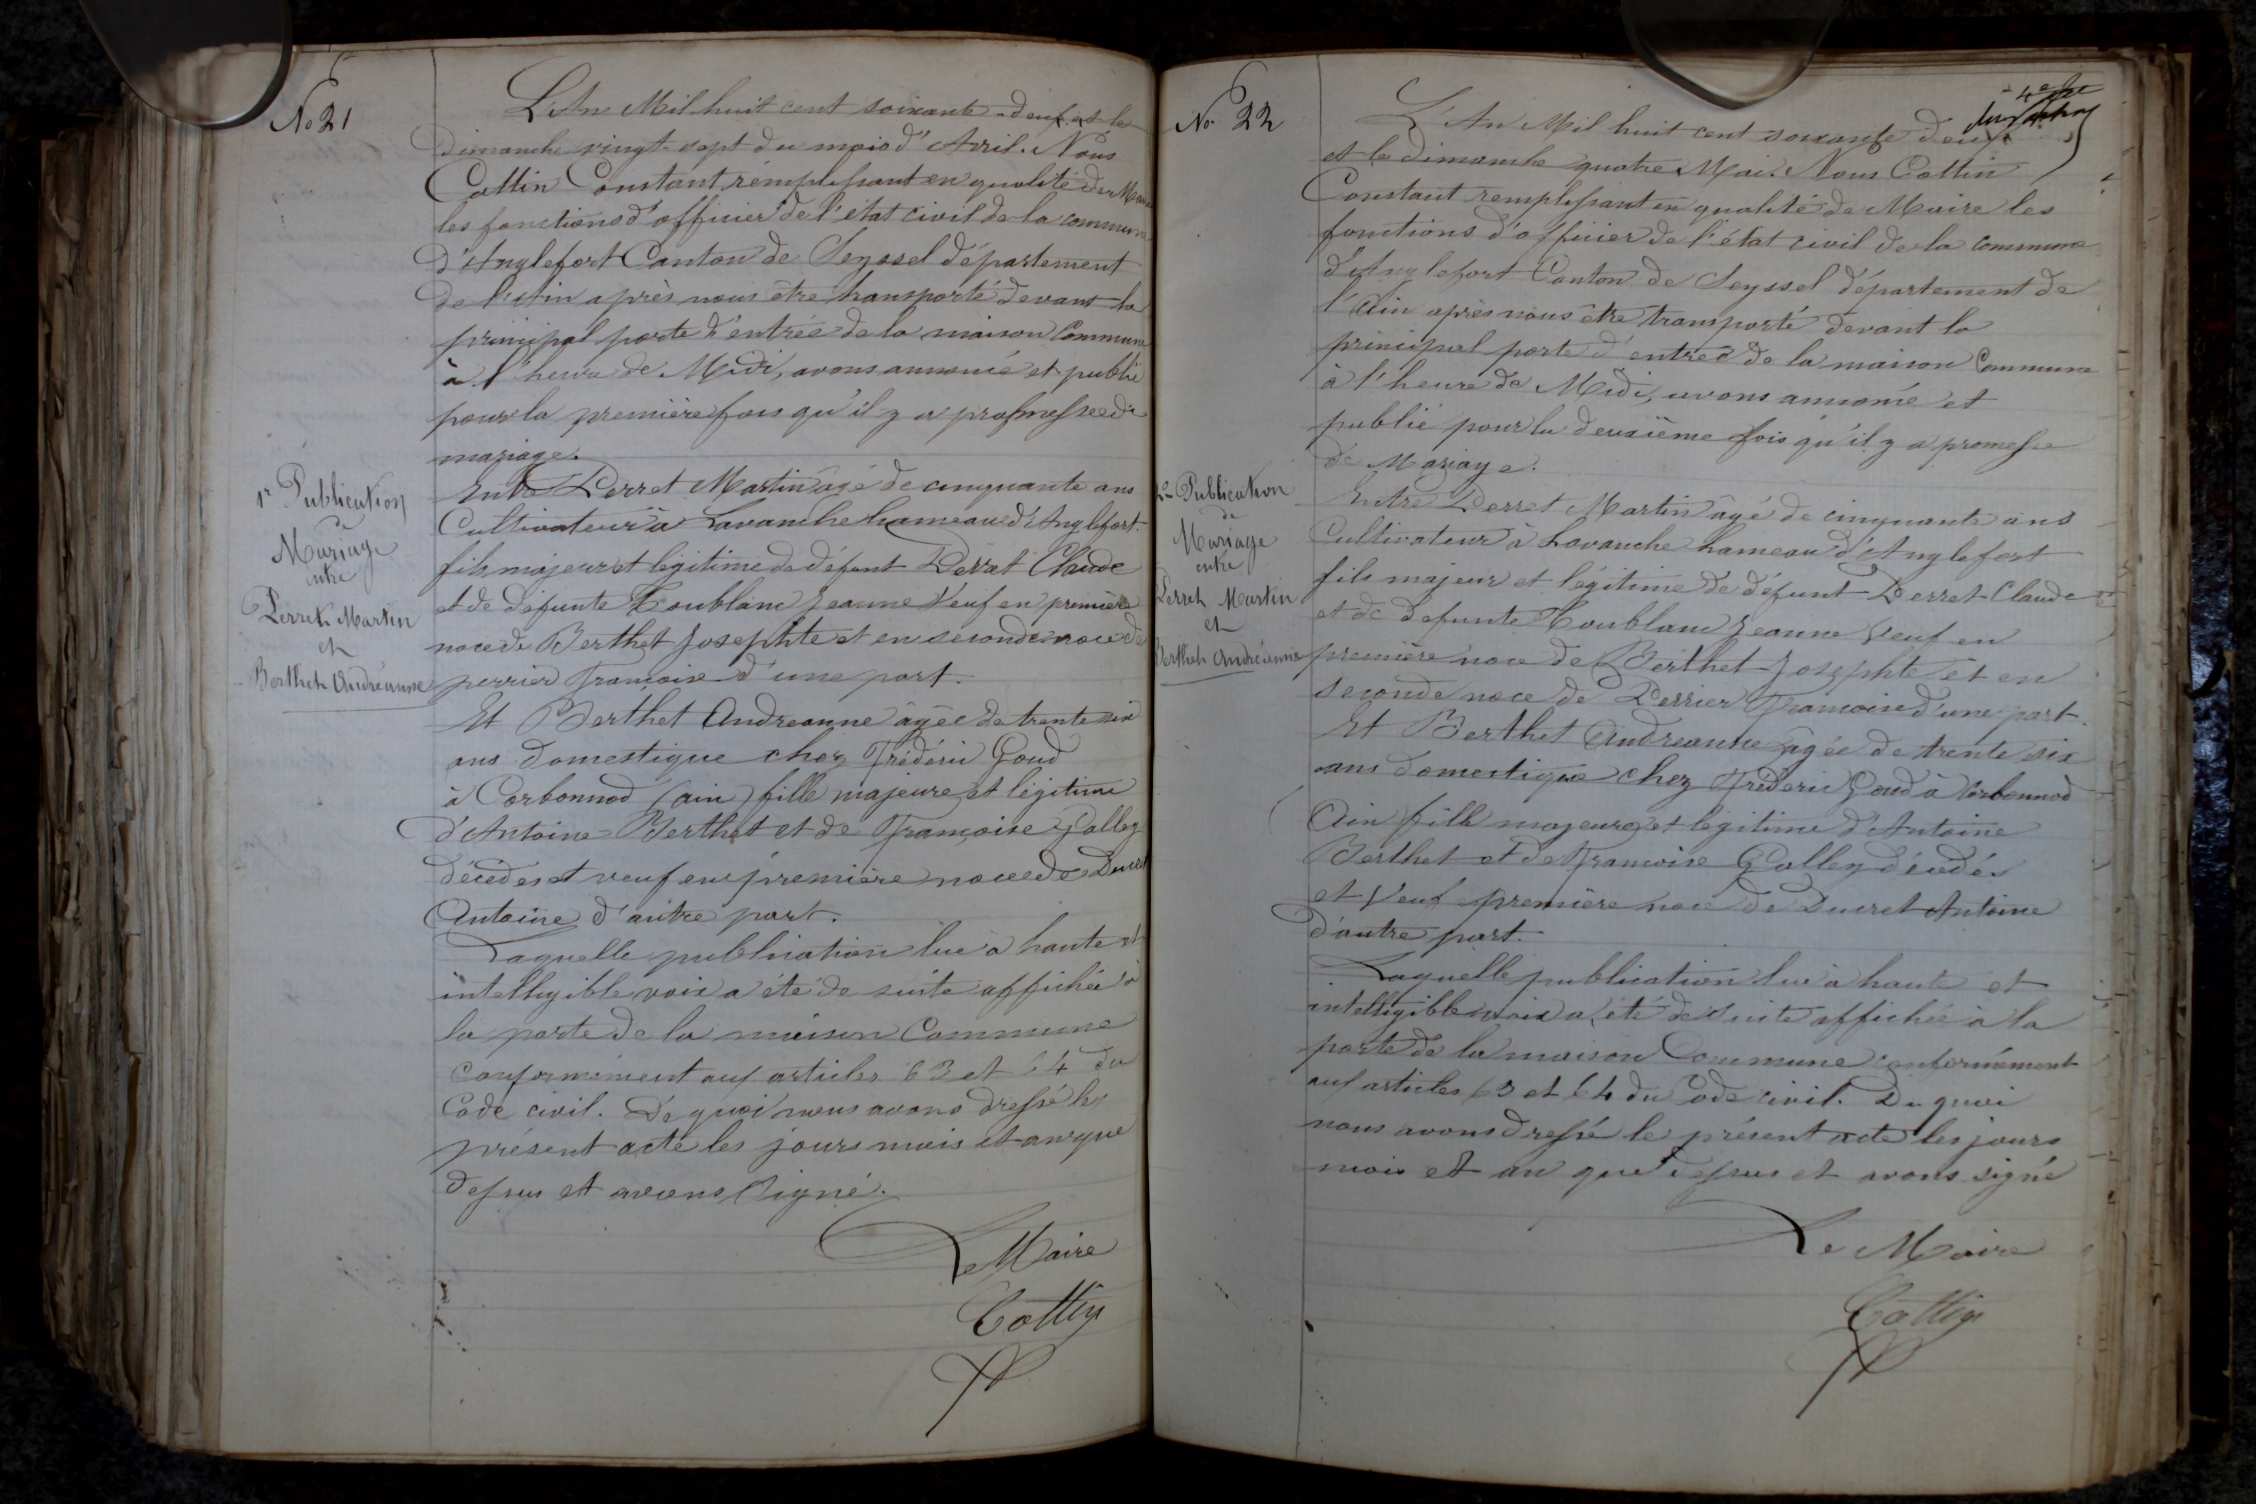 No 21
L'An Mil huit cent soixante-deux et le
dimanche vingt-sept du mois d'Avril. Nous
Cottin Constant remplissant en qualité de Maire
les fonctions d'officier de l'état civil de la commune
d'Anglefort Canton de Seyssel département
de l'Ain après nous être transporté devant la
principal porte d'entrée de la maison Commune
à l'heure de Midi, avons annoncé et publié
pour la première fois qu'il y a promesse de
mariage.
1re Publication
de
Mariage
entre
Perret Martin
et
Berthet Andréanne
Entre Perret Martin âgé de cinquante ans
Cultivateur à Lavanche hameau d'Anglefort
fils majeur et légitime de défunt Perret Claude
et de défunte Toublanc Jeanne Veuf en première
noce de Berthet Josephte et en seconde noce de
perrier Françoise d'une part.
Et Berthet Andreanne âgée de trente six
ans domestique chez Frédéric Goud
à Corbonnod (ain) fille majeure et légitime
d'Antoine Berthet et de Françoise Golley
décédés et veuf en première noce de Ducret
Antoine d'autre part.
Laquelle publication lue à haute et
intelligible voix a été de suite affichée à
la porte de la maison Commune
conformément aux articles 63 et 64 du
Code civil. De quoi nous avons dressé le
présent acte les jours mois et an que
dessus et avons signé.
Le Maire
Cottin
No 22
L'An Mil huit cent soixante deux
et le dimanche quatre Mai. Nous Cottin
Constant remplissant en qualité de Maire les
fonctions d'officier de l'état civil de la commune
d'Anglefort Canton de Seyssel département de
l'Ain après nous être transporté devant la
principal porte d'entrée de la maison Commune
à l'heure de Midi, avons annoncé et
publié pour la deuxième fois qu'il y a promesse
de Mariage.
2e Publication
de
Mariage
entre
Perret Martin
et
Berthet Andréanne
Entre Perret Martin âgé de cinquante ans
Cultivateur à Lavanche hameau d'Anglefort
fils majeur et légitime de défunt Perret Claude
et de defunte Toublanc Jeanne Veuf en
première noce de Berthet Josephte et en
seconde noce de Perrier Françoise d'une part.
Et Berthet Andreanne âgée de trente six
ans domestique chez Fréderic Goud à Corbonnod
Ain fille majeure et legitime d'Antoine
Berthet et de Françoise Golley décédés
et Veuf première noce de Ducret Antoine
d'autre part.
Laquelle publication lue à haute et
intelligible voix a été de suite affichée à la
porte de la maison Commune conformément
aux articles 63 et 64 du Code civil. De quoi
nous avons dressé le présent acte les jours
mois et an que dessus et avons signé
Le Maire
Cottin